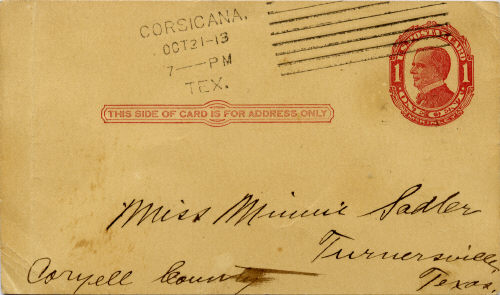 CORSICANA,
OCT 31-13
7 — PM
TEX.
U.S. POSTAL CARD
1 1
ONE CENT
THIS SIDE OF CARD IS FOR ADDRESS ONLY
Miss Minnie Sadler
Turnersville
Coryell County
Texas.